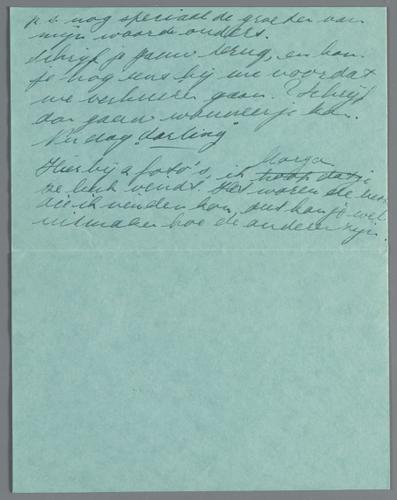 p.s. nog speciaal de groeten van
mijn waarde ouders.
Schrijf je gauw terug, en kom
je nog eens bij me voordat
we verhuizen gaan. Schrijf
dan gauw wanneer je kan.
Nu dag "darling"
Margo
Hierbij 2 foto's, ik hoop dat je
ze leuk vindt. Het waren de
die ik vinden kon, dus kan je wel
uitmaken hoe de anderen zijn.